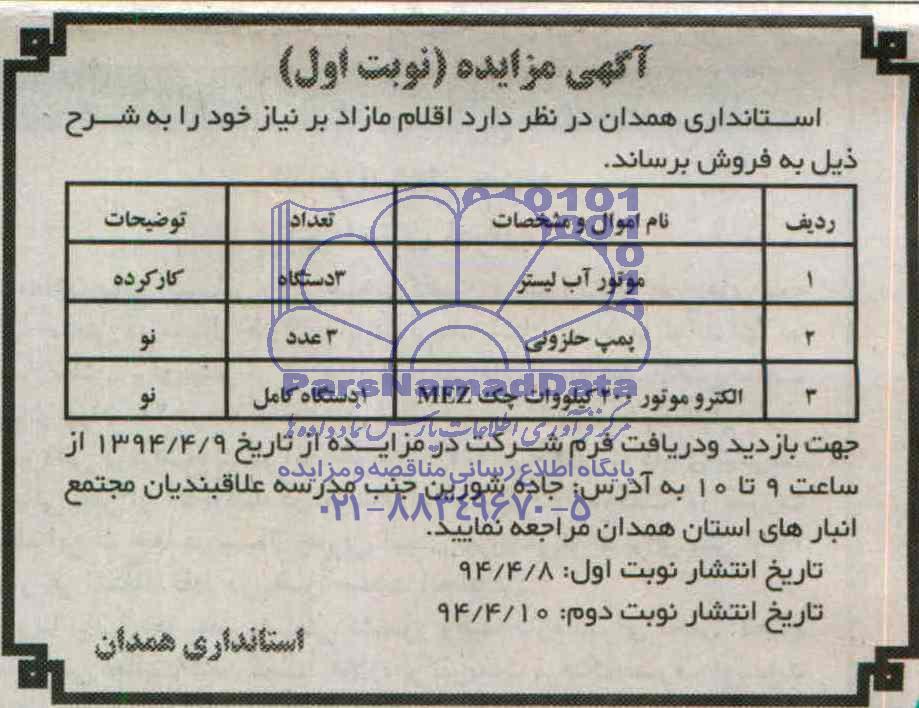 آگهی مزایده (نوبت اول)
استانداری همدان در نظر دارد اقلام مازاد بر نیاز خود را به شرح
ذیل به فروش برساند.
ردیف نام اموال و مشخصات تعداد توضیحات
۱ موتور آب لیستر ۳دستگاه کارکرده
۲ پمپ حلزونی ۳ عدد نو
۳ الکترو موتور ۲۰۰ کیلووات چکت MEZ ۱دستگاه کامل نو
جهت بازدید ودریافت فرم شرکت در مزایده از تاریخ ۱۳۹۴/۴/۹ از
ساعت ۹ تا ۱۰ به آدرس: جاده شورین جنب مدرسه علاقبندیان مجتمع
انبار های استان همدان مراجعه نمایید.
تاریخ انتشار نوبت اول: ۹۴/۴/۸
تاریخ انتشار نوبت دوم: ۹۴/۴/۱۰
استانداری همدان
ParsNamadData
مرکز فرآوری اطلاعات پارس نماد داده ها
پایگاه اطلاع رسانی مناقصه و مزایده
۰۲۱-۸۸۳۴۹۶۷۰-۵